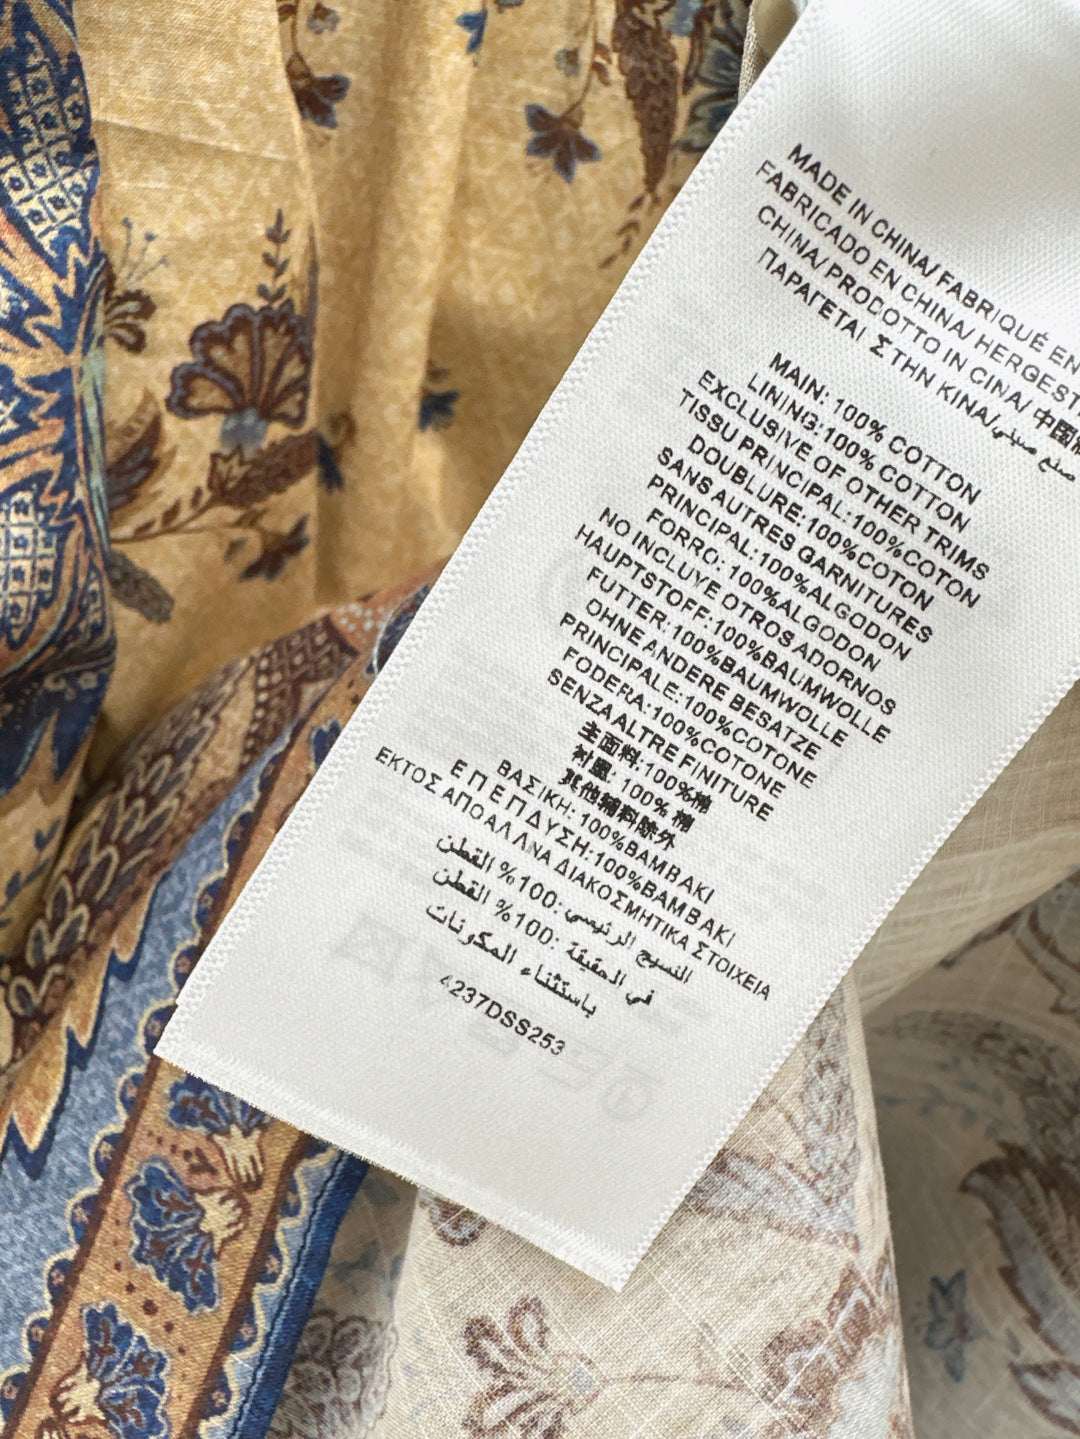 MADE IN CHINA/ FABRIQUÉ EN
FABRICADO EN CHINA/ HERGEST
CHINA/ PRODOTTO IN CINA/ 中国
ΠΑΡΑΓΕΤΑΙ ΣΤΗΝ ΚΙΝΑ/ صنع صيني
MAIN: 100% COTTON
LINING:100% COTTON
EXCLUSIVE OF OTHER TRIMS
TISSU PRINCIPAL:100%COTON
DOUBLURE:100%COTON
SANS AUTRES GARNITURES
PRINCIPAL:100%ALGODON
FORRO: 100%ALGODON
NO INCLUYE OTROS ADORNOS
HAUPTSTOFF:100%BAUMWOLLE
FUTTER:100%BAUMWOLLE
OHNE ANDERE BESATZE
PRINCIPALE:100%COTONE
FODERA:100%COTONE
SENZA ALTRE FINITURE
主面料:100%棉
衬里: 100% 棉
其他辅料除外
ΒΑΣΙΚΗ: 100%BAMBAKI
ΕΠΕΠΔΥΣΗ:100%BAMBAKI
ΕΚΤΟΣ ΑΠΟ ΑΛΛΝΑ ΔΙΑΚΟΣΜΗΤΙΚΑ ΣΤΟΙΧΕΙΑ
النسيج الرئيسي :100% القطن
في الحقيقة :100% القطن
باستثناء المكونات
4237DSS253